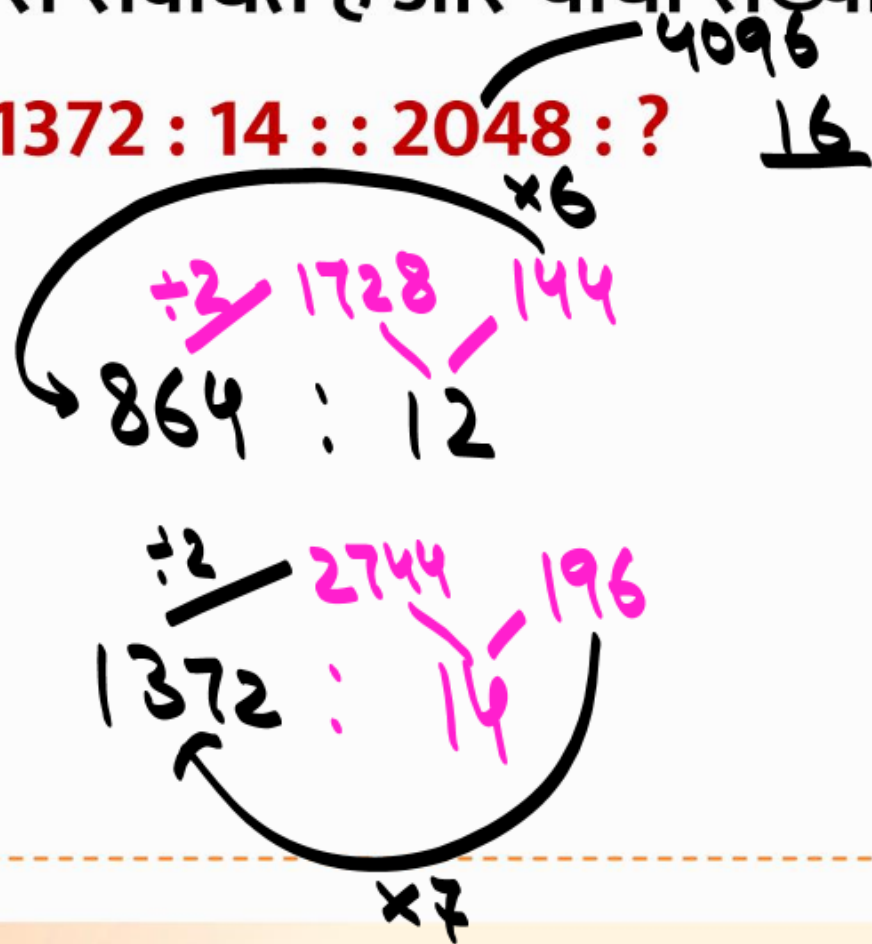 4096
1372 : 14 : : 2048 : ?
16
×6
÷2 1728 144
864 : 12
÷2 2744 196
1372 : 14
×7